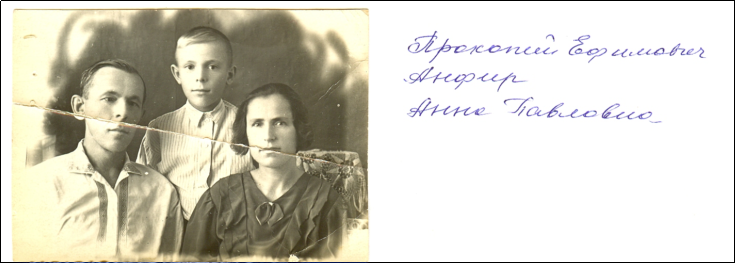 Прокопий Ефимович
Анфир
Анна Павловна